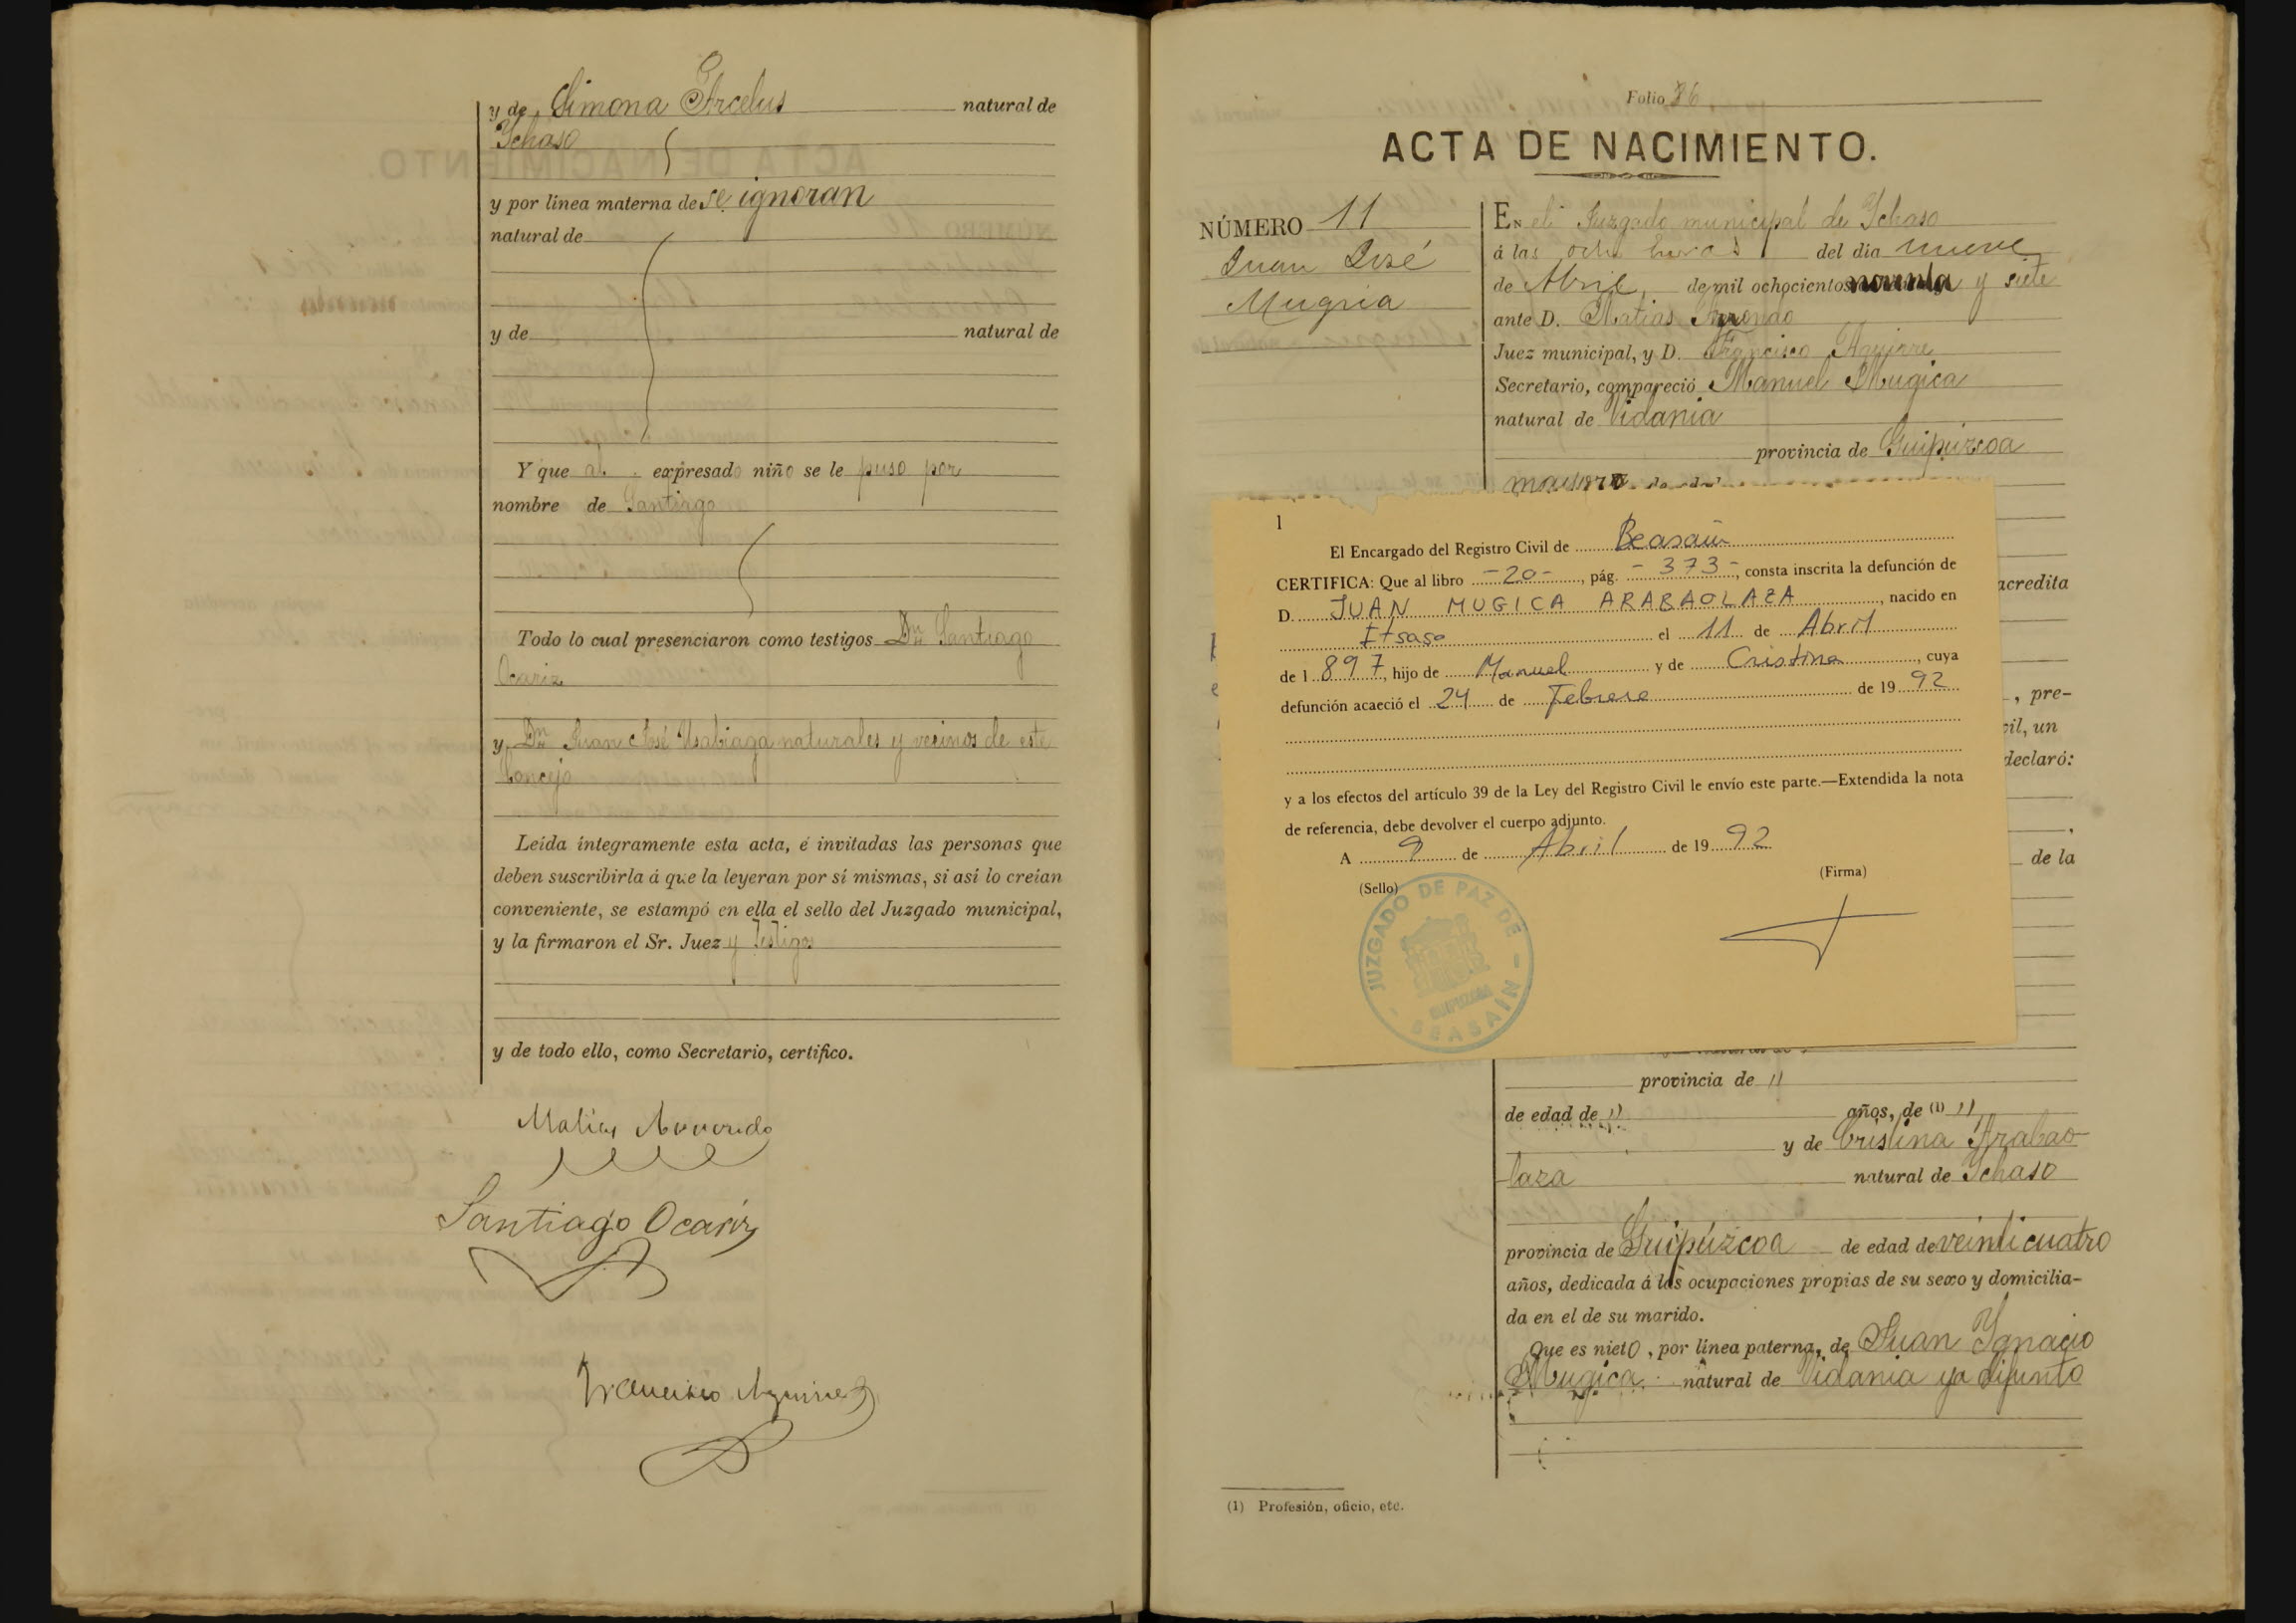 y de Simona Arcelus natural de
Ychaso
y por linea materna de se ignoran
natural de
y de natural de
Y que al expresado niño se le puso por
nombre de Santiago
Todo lo cual presenciaron como testigos Dn Santiago
Ocariz
y Dn Juan José Usabiaga naturales y vecinos de este
Concejo
Leída íntegramente esta acta, é invitadas las personas que
deben suscribirla á que la leyeran por sí mismas, si así lo creían
conveniente, se estampó en ella el sello del Juzgado municipal,
y la firmaron el Sr. Juez y testigos
y de todo ello, como Secretario, certifico.
Matias
Santiago Ocariz
Francisco Aguirre
Folio 36
ACTA DE NACIMIENTO.
NÚMERO 11
Juan José
Mugica
En el Juzgado municipal de Ychaso
á las ocho horas del dia nueve
de Abril de mil ochocientos noventa y siete
ante D. Matias
Juez municipal, y D. Francisco Aguirre
Secretario, compareció Manuel Mugica
natural de Vidania
provincia de Guipúzcoa
mayor de edad
1
El Encargado del Registro Civil de Beasain
CERTIFICA: Que al libro -20-, pág. -373-, consta inscrita la defunción de
D. JUAN MUGICA ARABAOLAZA, nacido en
Itsaso el 11 de Abril
de 1897, hijo de Manuel y de Cristina, cuya
defunción acaeció el 24 de Febrero de 1992
y a los efectos del artículo 39 de la Ley del Registro Civil le envío este parte.—Extendida la nota
de referencia, debe devolver el cuerpo adjunto.
A 9 de Abril de 1992
(Sello) (Firma)
JUZGADO DE PAZ DE
GUIPUZCOA
- BEASAIN -
acredita
, pre-
vil, un
declaró:
,
de la
provincia de "
de edad de " años, de (1) "
y de Cristina Arabao-
laza natural de Ychaso
provincia de Guipúzcoa de edad de veinticuatro
años, dedicada á las ocupaciones propias de su sexo y domicilia-
da en el de su marido.
Que es nieto, por linea paterna, de Juan Ygnacio
Mugica natural de Vidania ya difunto
(1) Profesión, oficio, etc.